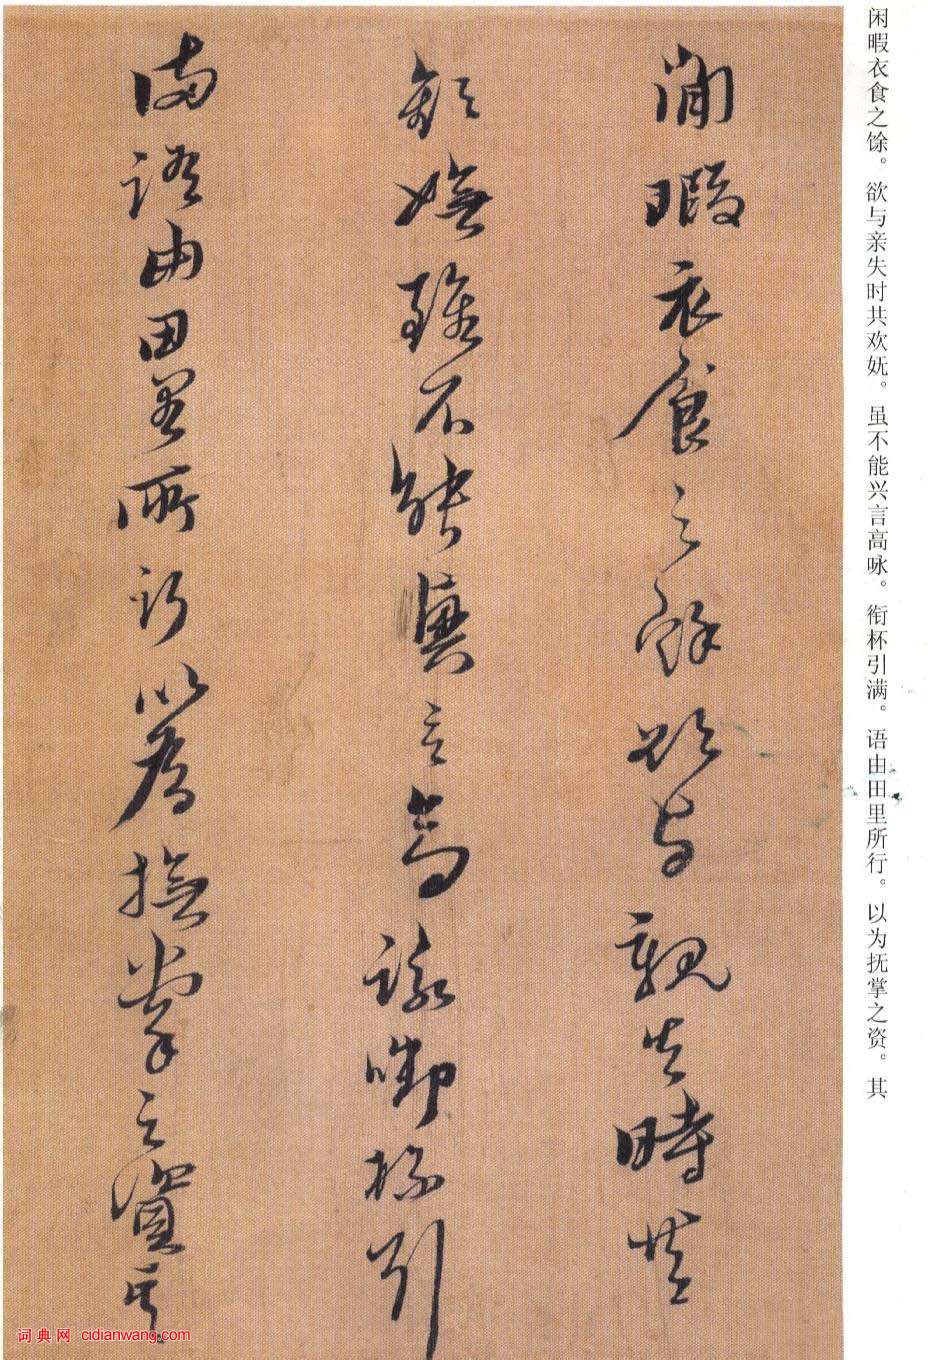 闲暇衣食之馀。欲与亲失时共欢妩。虽不能兴言高咏。衔杯引满。语由田里所行。以为抚掌之资。其
閒暇衣食之餘欲与親失時共
歡嫵雖不能興言高詠啣杯引
満語由田里所行以為撫掌之資其
词典网 cidianwang.com